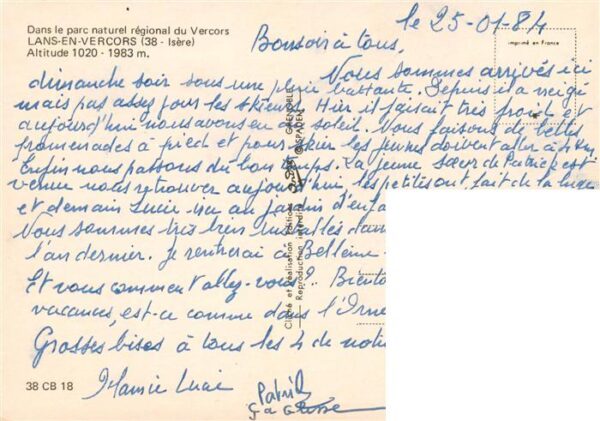 Dans le parc naturel régional du Vercors
LANS-EN-VERCORS (38 - Isère)
Altitude 1020 - 1983 m.
imprimé en France
le 25-01-84
Bonsoir à tous,
Nous sommes arrivés ici
dimanche soir sous une pluie battante. Depuis il a neigé
mais pas assez pour les skieurs. Hier il faisait très froid et
aujourd'hui nous avons eu du soleil. Nous faisons de belles
promenades à pied et pour skier les jeunes doivent aller à 4 Km
Enfin nous passons du bon temps. La jeune sœur de Patrice est
venue nous retrouver aujourd'hui, les petits ont fait de la luge
et demain Lucie ira au jardin d'enfa
Nous sommes très bien installés dan
l'an dernier. Je rentrerai à Belleme
Et vous comment allez-vous? .. Biento
vacances, est-ce comme dans l'Orne
Grosses bises à tous les 4 de notr
Mamie Lucie
Patri
38 CB 18
Cliché et réalisation Editions
GRENOBLE
Reproduction interdite